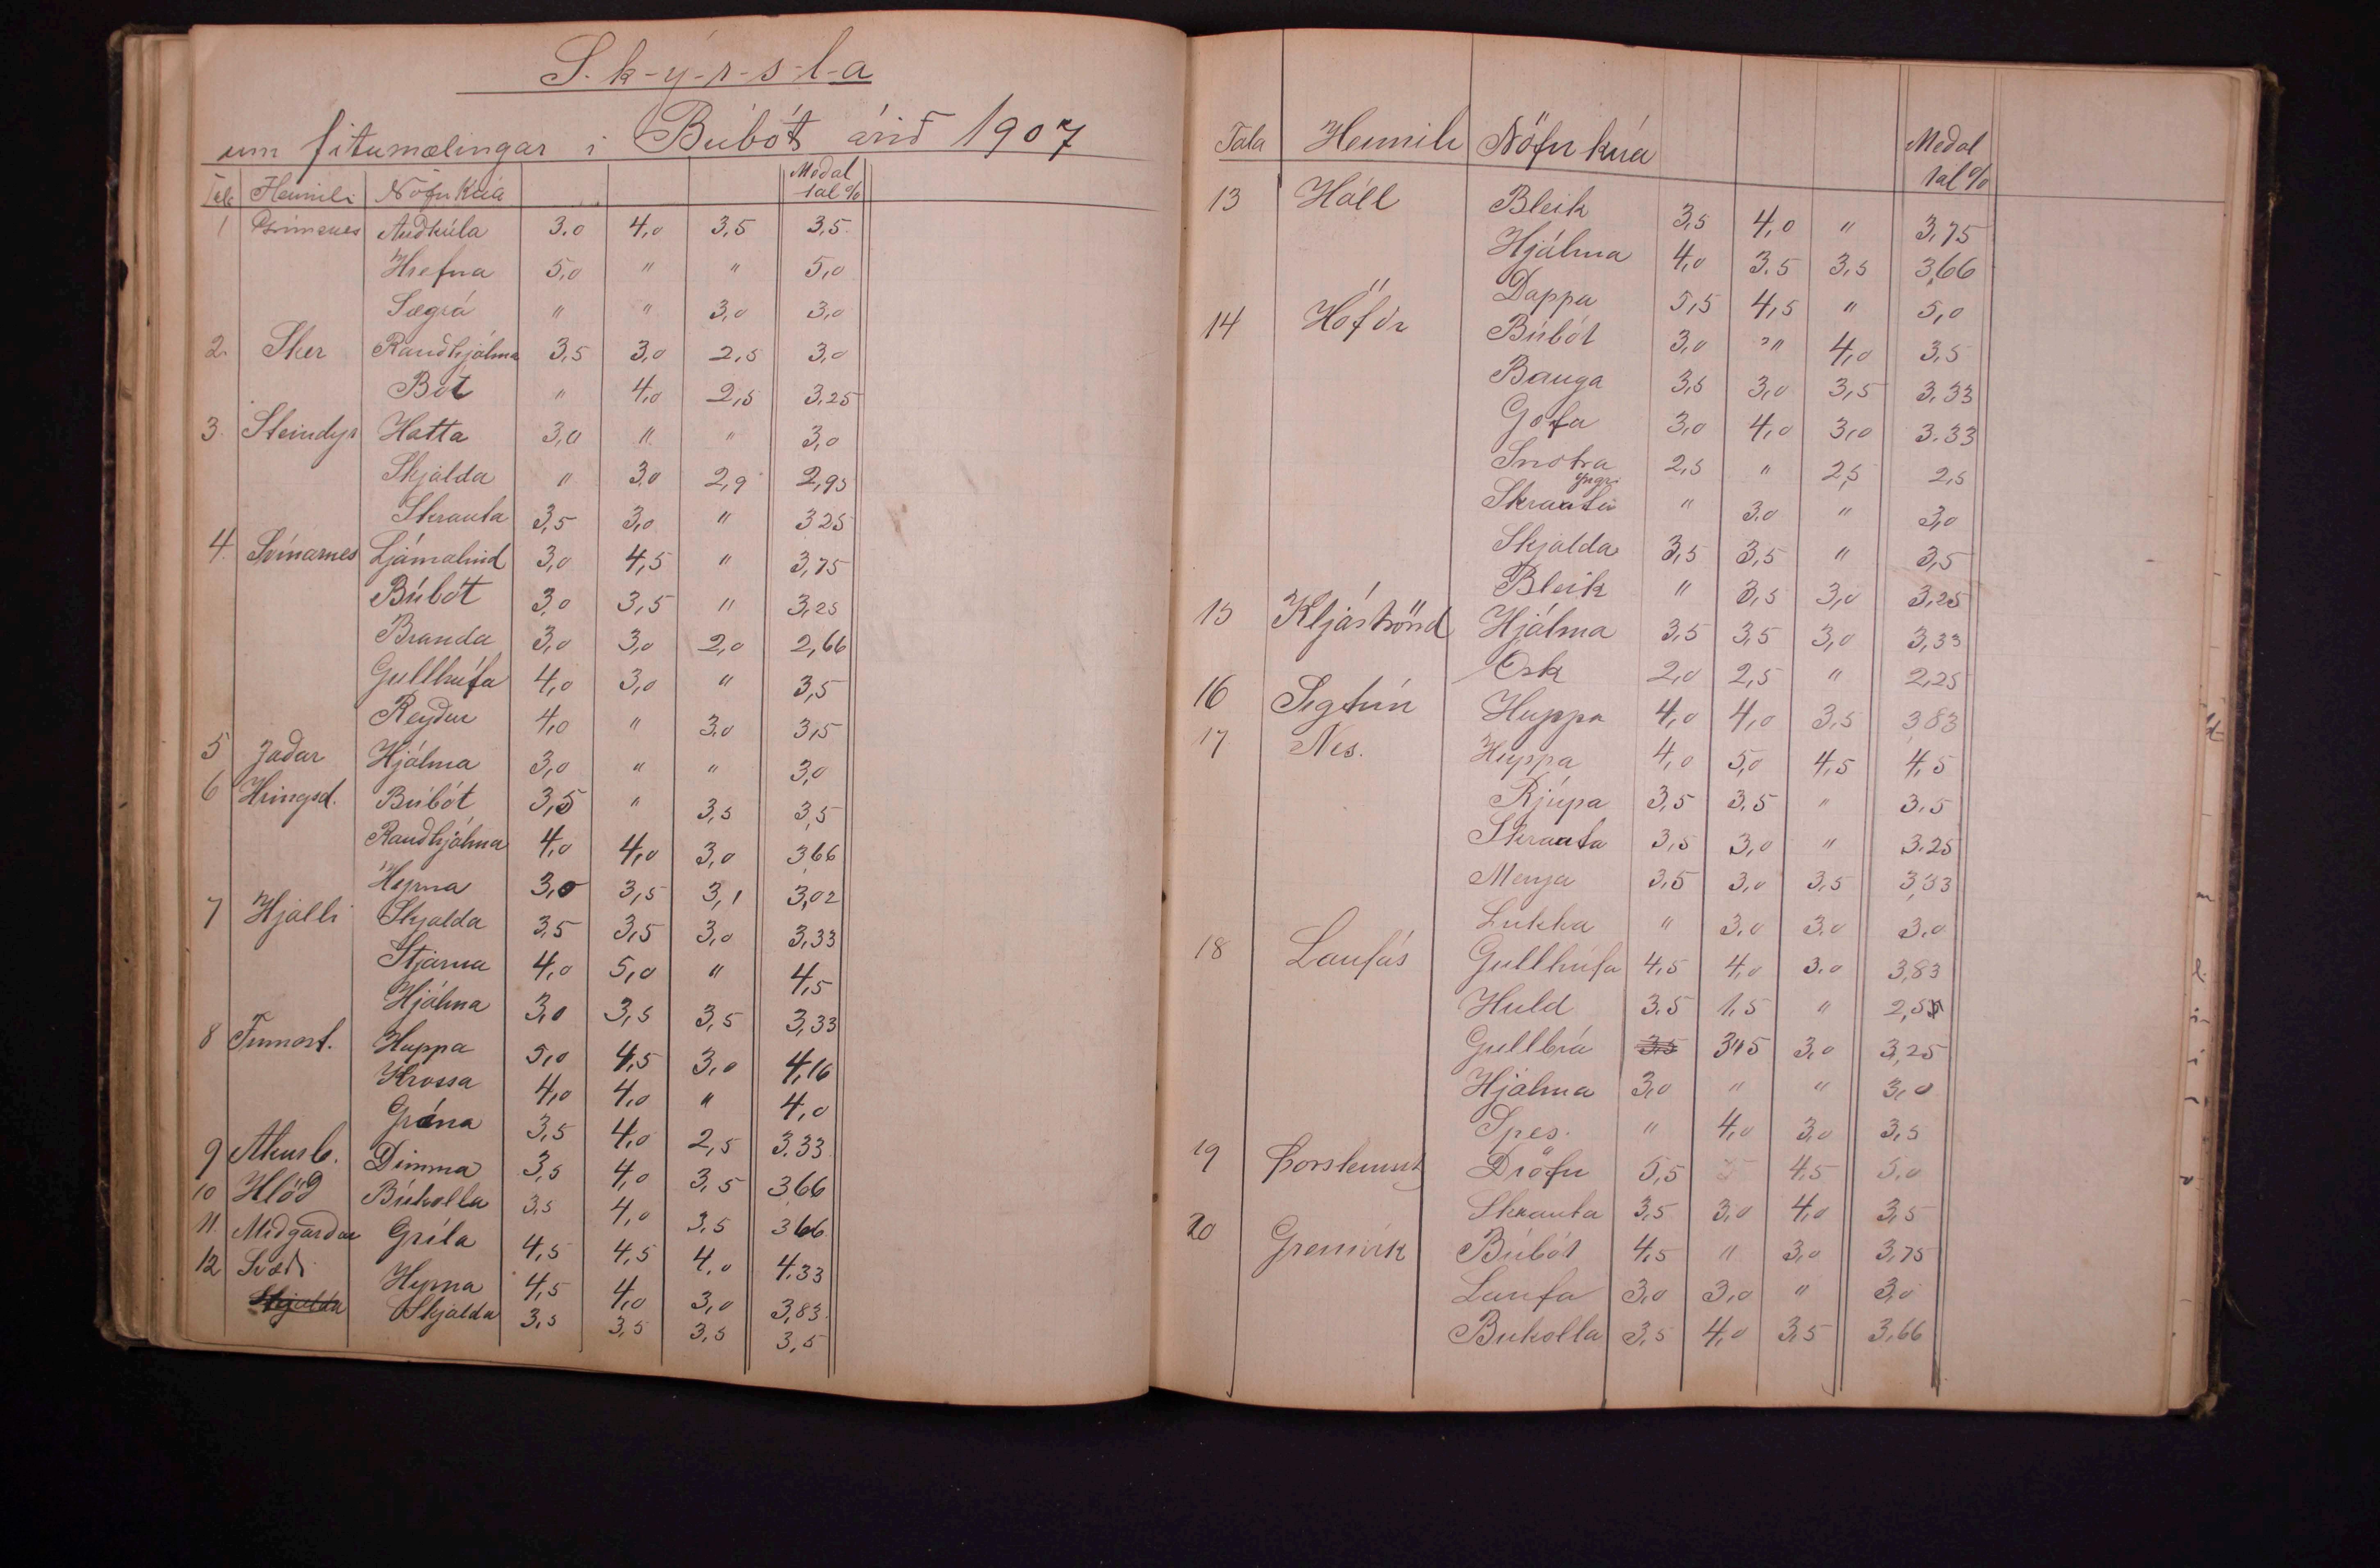 S-k-ý-r-s-l-a
um fitumælingar í Búbót árið 1907
Tala Heimili Nöfn kúa Meðal tal %
1 Grímsnes Auðkúla 3.0 4,0 3,5 3,5
Hrefna 5,0 " " 5,0
Sægrá " " 3,0 3,0
2. Sker Rauðhjálma 3,5 3,0 2,5 3,0
Bót " 4,0 2,5 3,25
3. Steindyr Hatta 3,0 " " 3,0
Skjalda " 3,0 2,9 2,95
Skrauta 3,5 3,0 " 3 25
4. Svínarnes Ljómalind 3,0 4,5 " 3,75
Búbót 3,0 3,5 " 3,25
Branda 3,0 3,0 2,0 2,66
Gullhúfa 4,0 3,0 " 3,5
Reyður 4,0 " 3,0 3,5
5 Jaðar Hjálma 3,0 " " 3,0
6 Hringsd. Búbót 3,5 " 3,5 3,5
Rauðhjálma 4,0 4,0 3,0 3,66
Hyrna 3,0 3,5 3,1 3,02
7 Hjalli Skjalda 3,5 3,5 3,0 3,33
Stjarna 4,0 5,0 " 4,5
Hjálma 3,0 3,5 3,5 3,33
8 Finnast. Huppa 5,0 4,5 3,0 4,16
Krossa 4,0 4,0 " 4,0
Grána 3,5 4,0 2,5 3.33
9 Akursb. Dimma 3,5 4,0 3,5 3,66
10 Hlöð Búkolla 3,5 4,0 3,5 3 66
11. Miðgarðar Gríla 4,5 4,5 4,0 4.33
12 Svæði Hyrna 4,5 4,0 3,0 3,83.
Skjalda Skjalda 3,5 3,5 3,5 3,5
Tala Heimili Nöfn kúa Meðal tal %
13 Háll Bleik 3,5 4,0 " 3,75
Hjálma 4,0 3.5 3,5 3,66
Dappa 5,5 4,5 " 5,0
14 Höfði Búbót 3,0 " 4,0 3,5
Bauga 3,5 3,0 3,5 3.33
Gofa 3,0 4,0 3,0 3.33
Snotra 2,5 " 2,5 2,5
Skrauta yngri " 3.0 " 3,0
Skjalda 3,5 3,5 " 3,5
Bleik " 3,5 3,0 3,25
15 Kljáströnd Hjálma 3,5 3,5 3,0 3,33
Ösk 2,0 2,5 " 2,25
16 Sigtún Huppa 4,0 4,0 3,5 3,83
17 Nes. Huppa 4,0 5,0 4,5 4,5
Rjúpa 3,5 3.5 " 3.5
Skrauta 3,5 3,0 " 3.25
Menja 3,5 3,0 3,5 3,33
Lukka " 3.0 3.0 3.0
18 Laufás Gullhúfa 4,5 4,0 3.0 3,83
Huld 3.5 1,5 " 2,5
Gullbrá 3.5 3,5 3,0 3,25
Hjálma 3,0 " " 3,0
Spes. " 4,0 3,0 3,5
19 Dröfn 5,5 5 4,5 5,0
Skrauta 3,5 3,0 4,0 3,5
20 Grenivík Búbót 4,5 " 3,0 3,75
Laufa 3,0 3,0 " 3,0
Bukolla 3,5 4,0 3,5 3,66